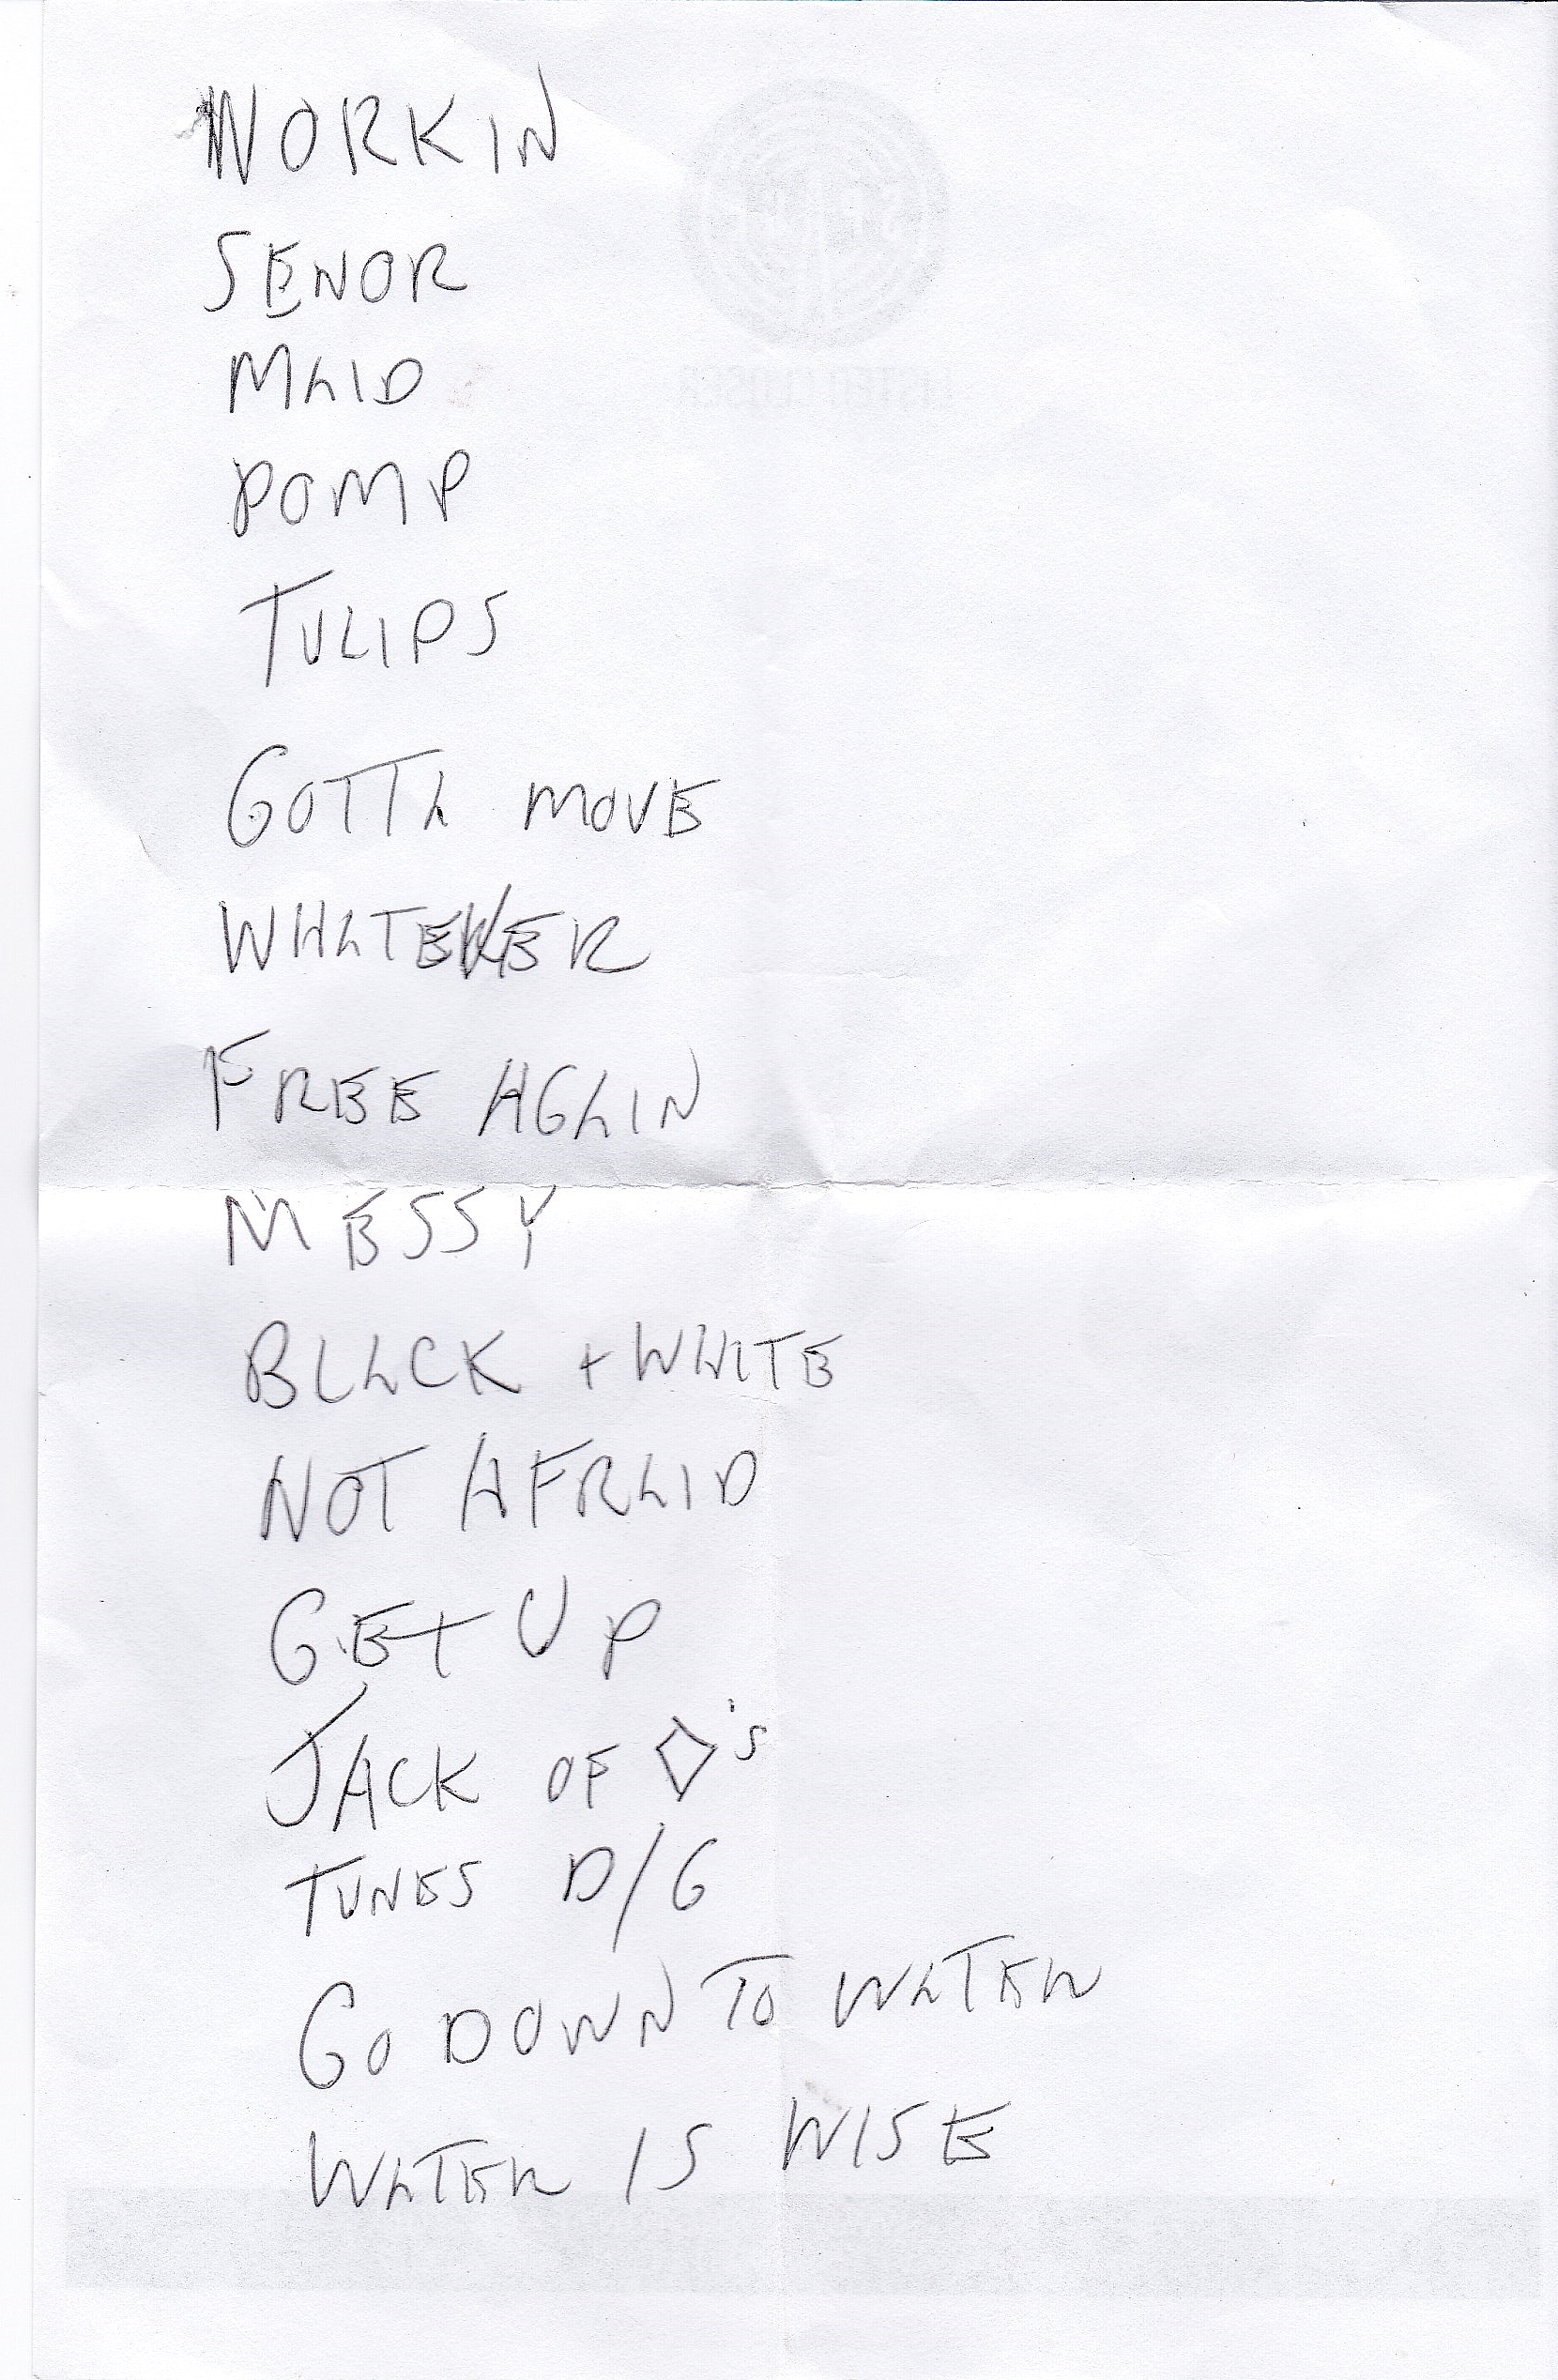 WORKIN
SENOR
MAID
POMP
TULIPS
GOTTA MOVE
WHATEVER
FREE AGAIN
MESSY
BLACK + WHITE
NOT AFRAID
GET UP
JACK OF ◇'s
TUNES D/G
GO DOWN TO WATER
WATER IS WISE